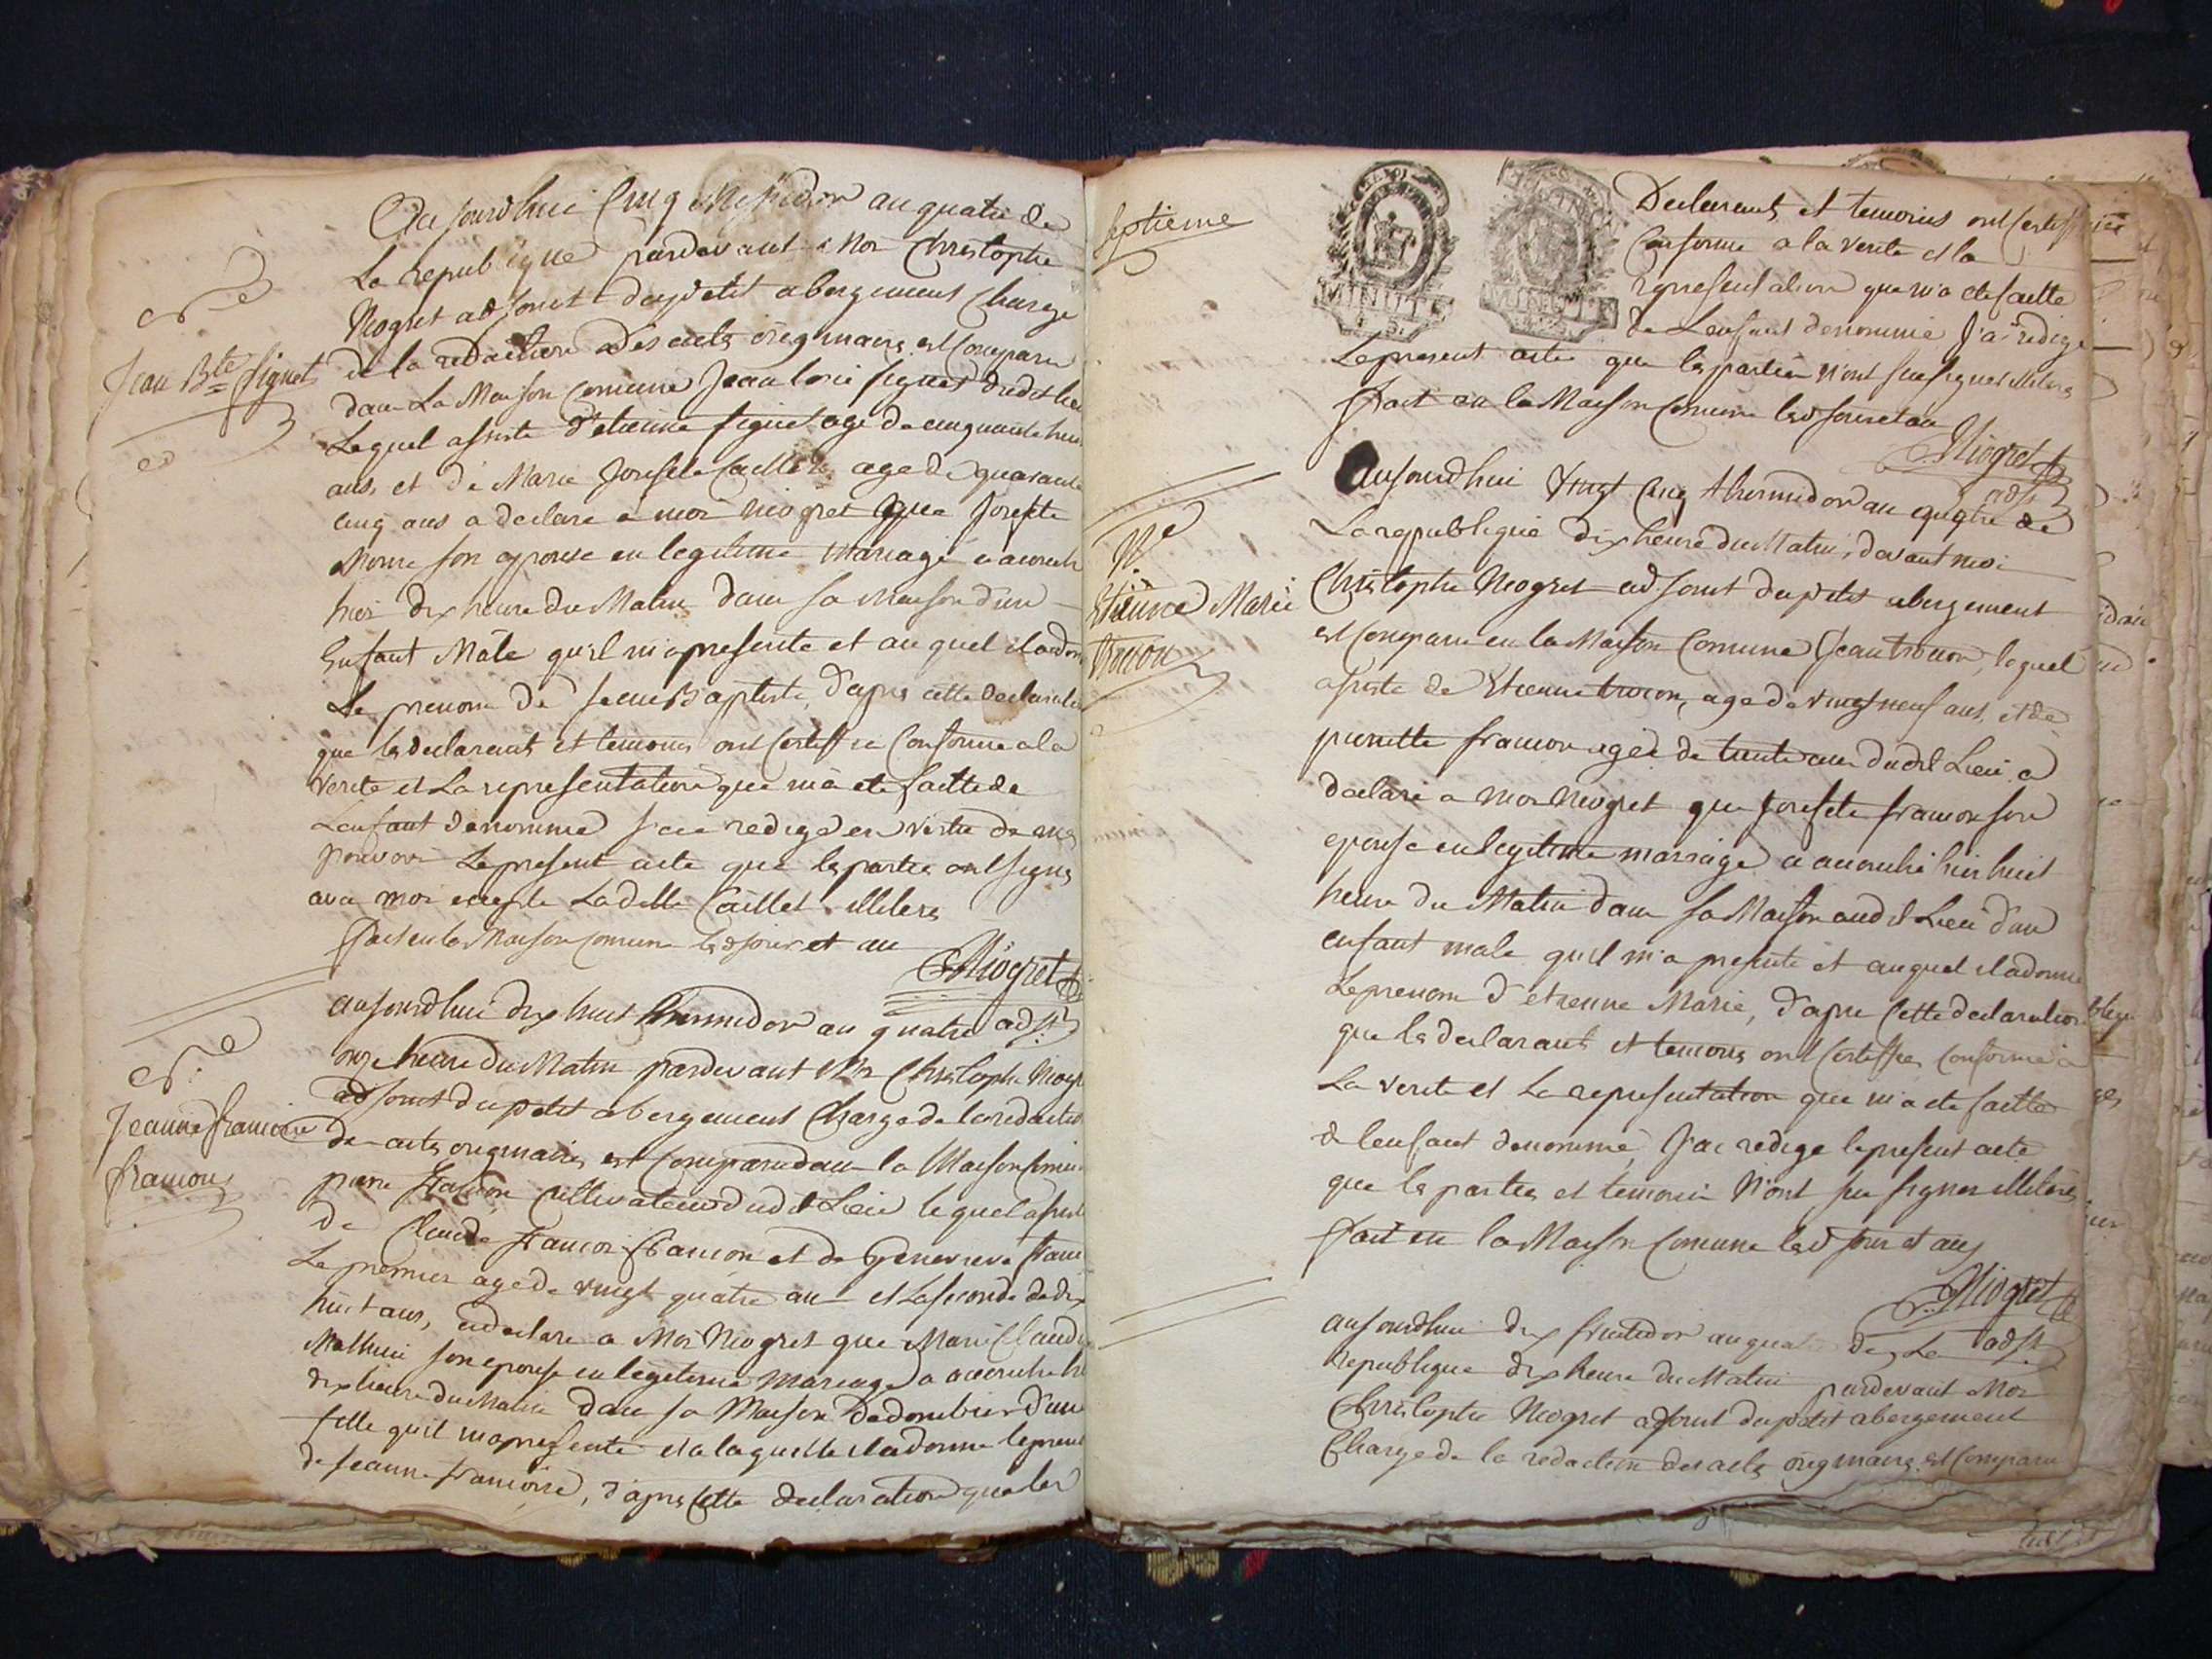 Aujourdhui Cinq Messidor an quatre de
La republique pardevant Moi Christophe
Niogret adjoint du petit abergement Charge
de la redaction des acts originaires est Comparu
dans La Maison Comune Jean Louis signet dudit lieu
Nce
Jean Bte Signet
Lequel assiste d'etienne signet age de cinquante huit
ans, et de Marie Josephte Caillet agede quarante
cinq ans a declare a moi niogret que Josephte
son epouse en legitime mariage a acouche
hier dix heure du Matin dans sa maison d'un
Enfant Mâle qu'il m'a presente et auquel il a donne
Le prenom de Jean Baptiste, d'apres cette declaration
que les declarants et temoins ont certiffie Conforme a la
verite et La representation que m'a ete faitte de
L'enfant denomme j'ai redige en vertu de mes
pouvoir Le present acte que les parties ont signes
avec moi excepte Laditte Caillet illiteres
fait en la Maison Comune led jour et an
C Niogret
adjt
aujourdhui dix huit thermidor an quatre
onze heure du Matin pardevant Moi Christophe Niogret
adjoint du petit abergement Charge de la redaction
Nce
Jeanne francoise
francon
des acts originaires est Comparu dans la Maison Comune
pierre francon cultivateur dudit Lieu lequel assiste
de Claude francois francon et de Genevieve francon
Le premier age de vingt quatre ans et La seconde de dix
huit ans, a declare a Moi Niogret que Marie Claudine
Mathieu son epouse en legitime Mariage a acouche hier
dix heure du Matin dans sa Maison d'une
fille qu'il m'a presente et a laquelle il a donne le prenom
de jeanne francoise, d'apres Cette declaration que les
septieme
MINUTE
MINUTE
Declarants et temoins ont certiffiee
Conforme a la verite et la
representation que m'a ete faitte
de L'enfant denomme J'ai redige
Le present acte que les parties n'ont seu signer illiteres
fait en la Maison Comune led jour et an
C. Niogret
adjt
aujourdhui vingt Cinq thermidor an quatre de
La republique dix heure du Matin, devant moi
Nce
Etienne Marie
trocon
Christophe Niogret adjoint du petit abergement
est Comparu en la Maison Comune Jean trocon, lequel
assiste de Etienne trocon, age de vingt neuf ans, et de
pierrette francon agée de trente ans dudit Lieu a
declare a moi Niogret que Josephte francon son
epouse en legitime marriage a acouche hier huit
heure du Matin dans sa Maison audit Lieu d'un
enfant male qu'il m'a presente et auquel il a donne
Le prenom d'etienne Marie, d'apres Cette declaration
que les declarants et temoins ont certiffies conforme a
La verite et La representation que m'a ete faitte
de l'enfant denomme, J'ai redige le present acte
que les parties et temoin N'ont seu signer illiteres
fait en la Maison Comune led jour et an
C. Niogret
adjt
aujourdhui dix fructidor an quatre de La
republique dix heure du Matin pardevant Moi
Christophe Niogret adjoint du petit abergement
Charge de la redaction des acts originaires est Comparu